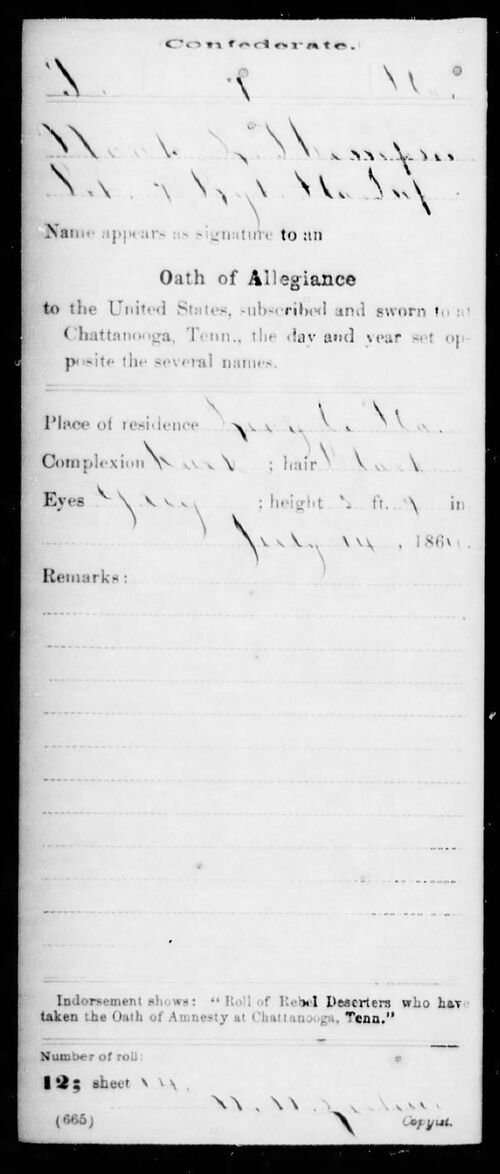 Confederate.
T. 7 Fla.
Noah L. Thompson
Pvt. 7 Rgt Fla Inf
Name appears as signature to an
Oath of Allegiance
to the United States, subscribed and sworn to at
Chattanooga, Tenn., the day and year set op-
posite the several names.
Place of residence Fla.
Complexion Dark ; hair Black
Eyes Grey ; height 5 ft. 9 in
July 14 , 1864.
Remarks:
Indorsement shows: "Roll of Rebel Deserters who have
taken the Oath of Amnesty at Chattanooga, Tenn."
Number of roll:
12; sheet 14.
(665) Copyist.